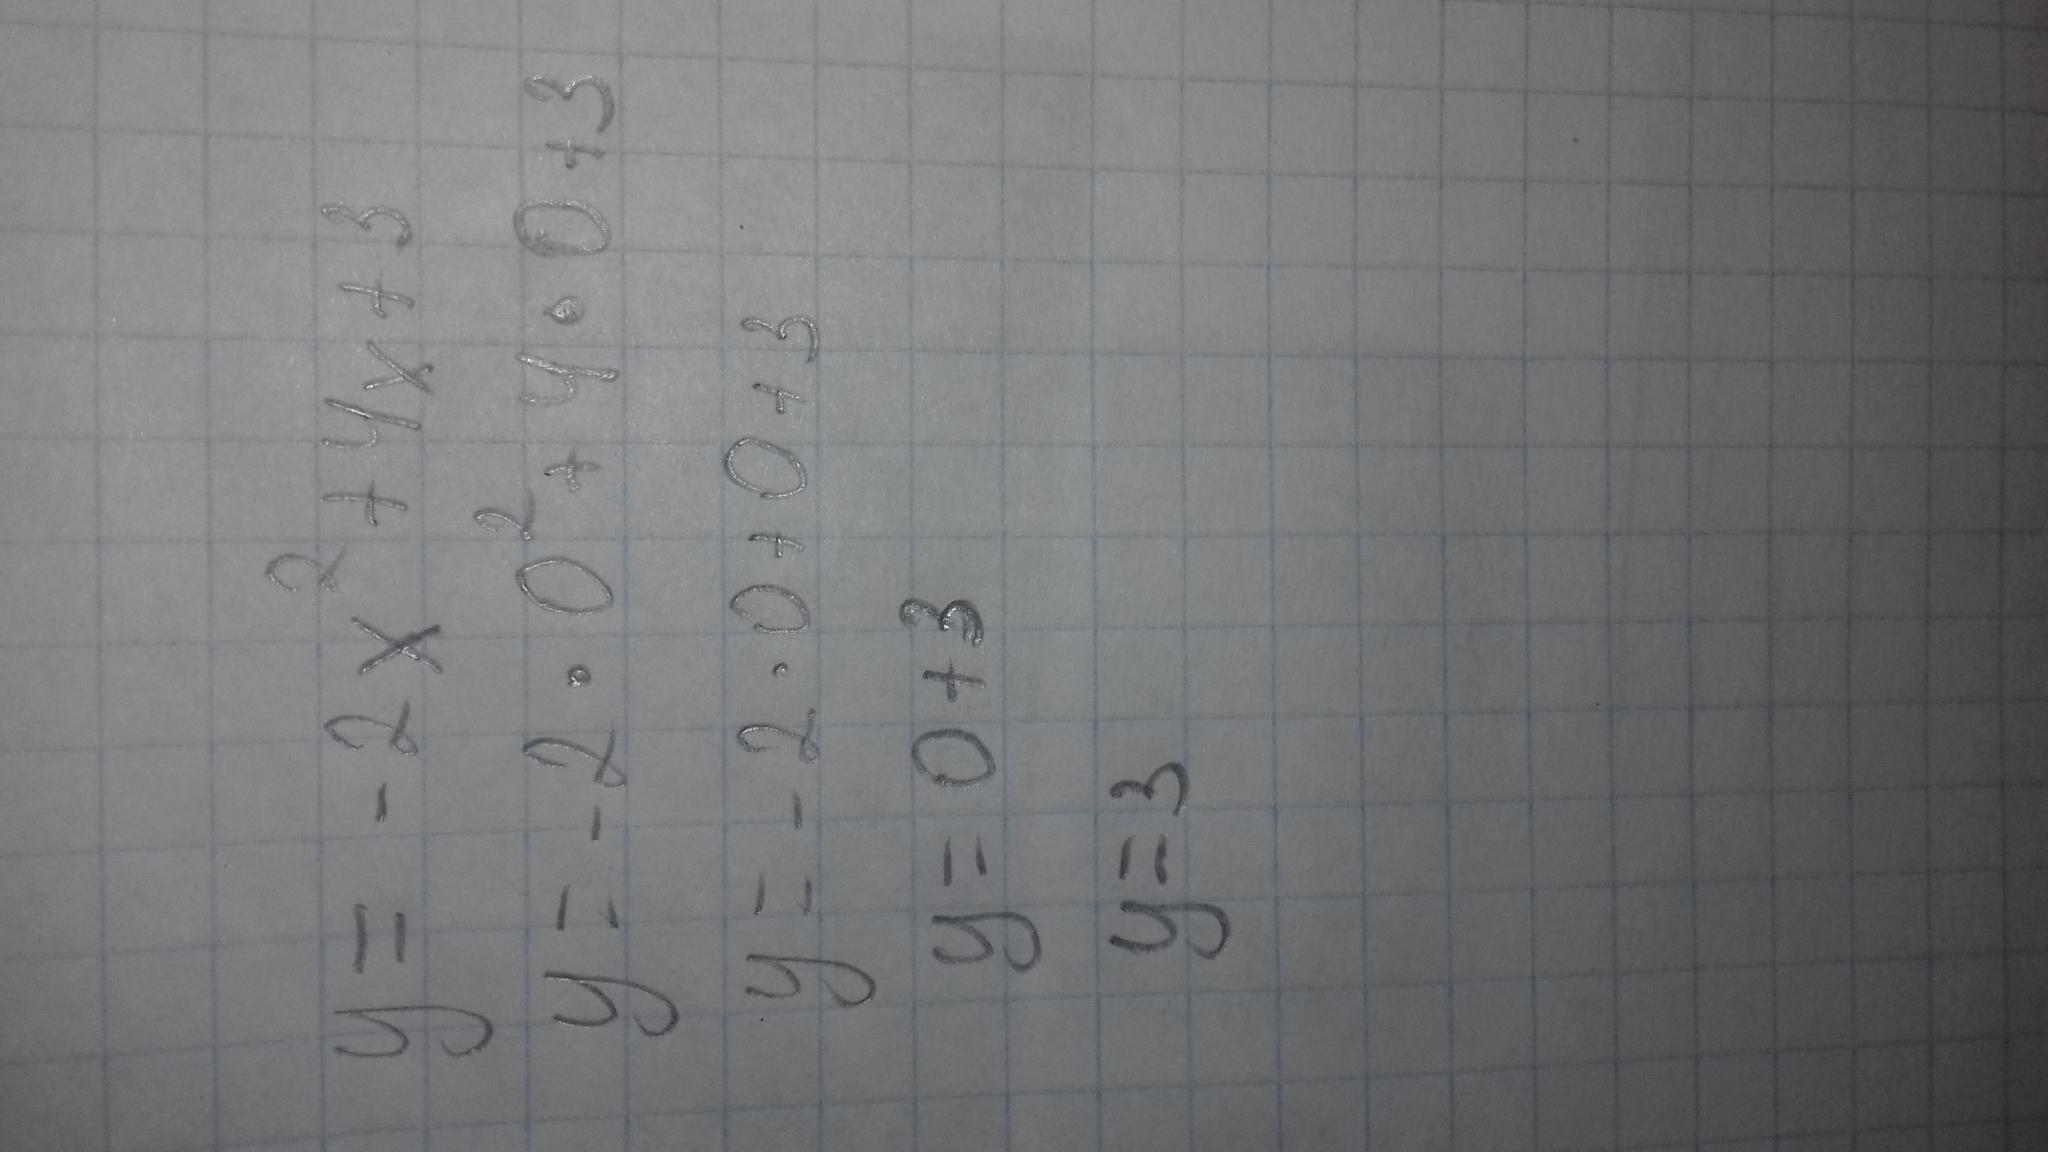 y = -2x² + 4x + 3
y = -2 · 0² + 4 · 0 + 3
y = -2 · 0 + 0 + 3
y = 0 + 3
y = 3